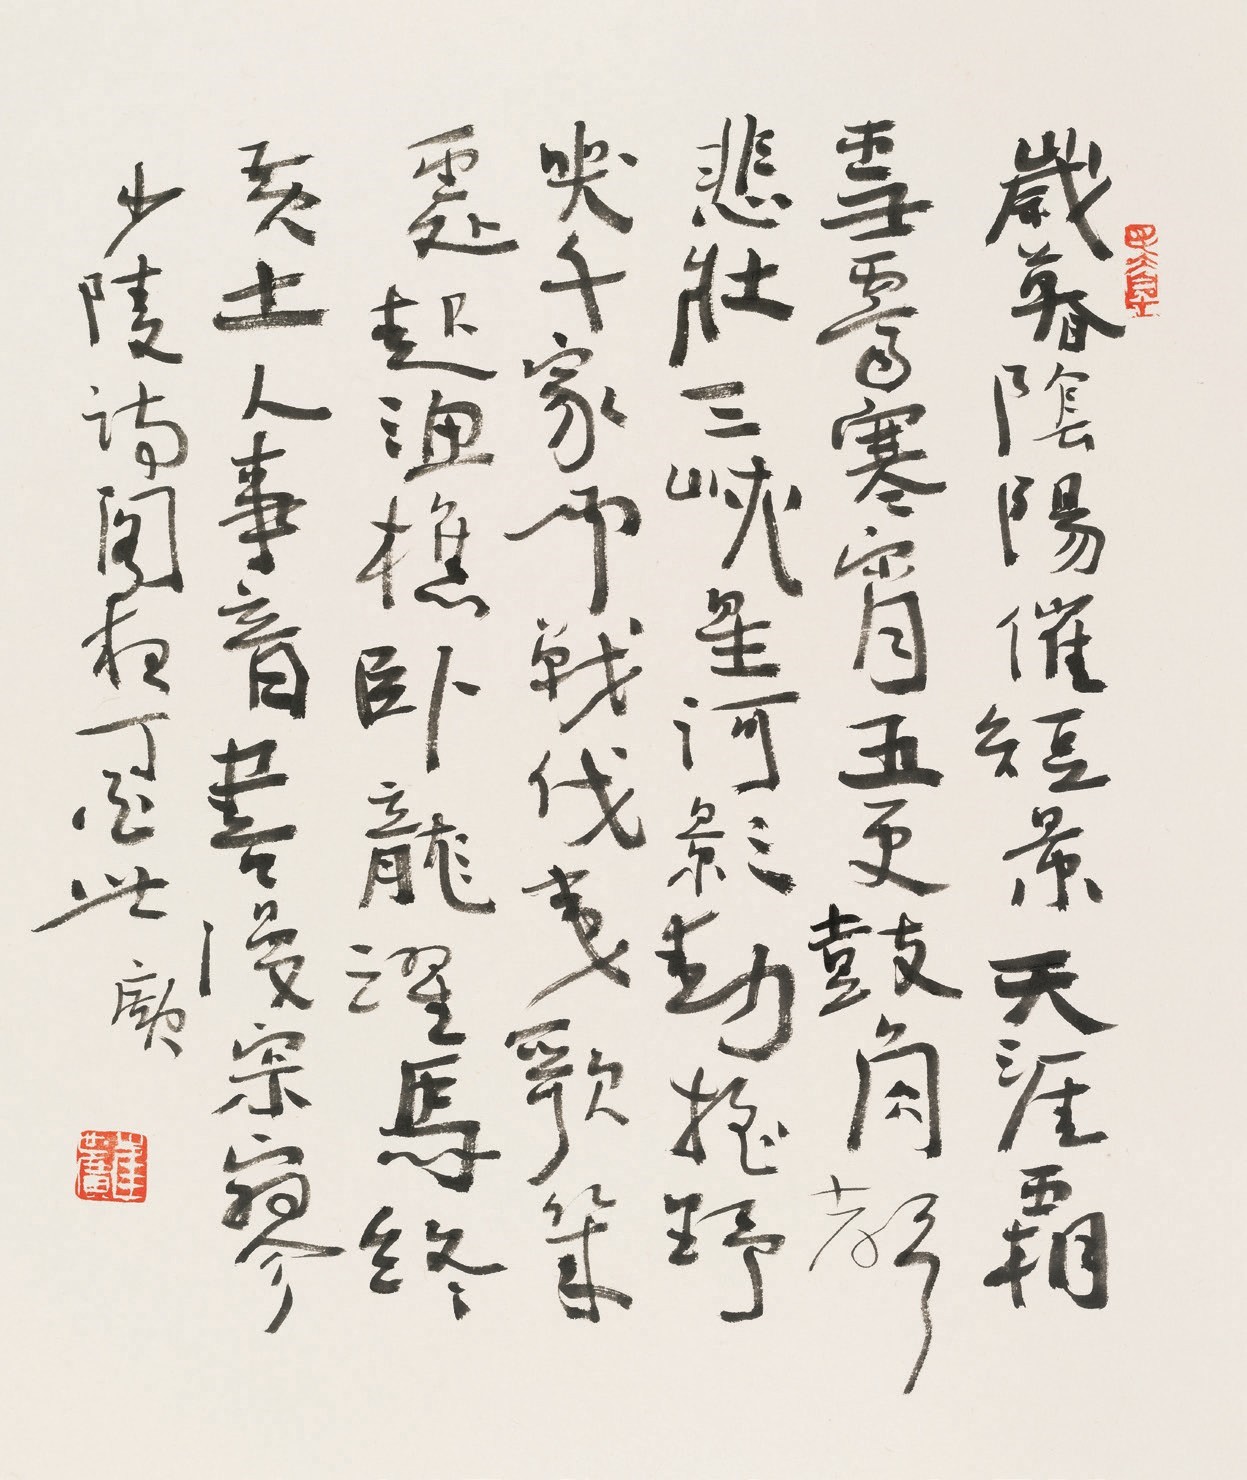 歲暮陰陽催短景天涯霜
雪霽寒宵五更鼓角聲
悲壯三峽星河影動搖野
哭千家聞戰伐夷歌幾
處起漁樵臥龍躍馬終
黃土人事音書漫寂寥
少陵詩閣夜丁酉世廣
崔世廣